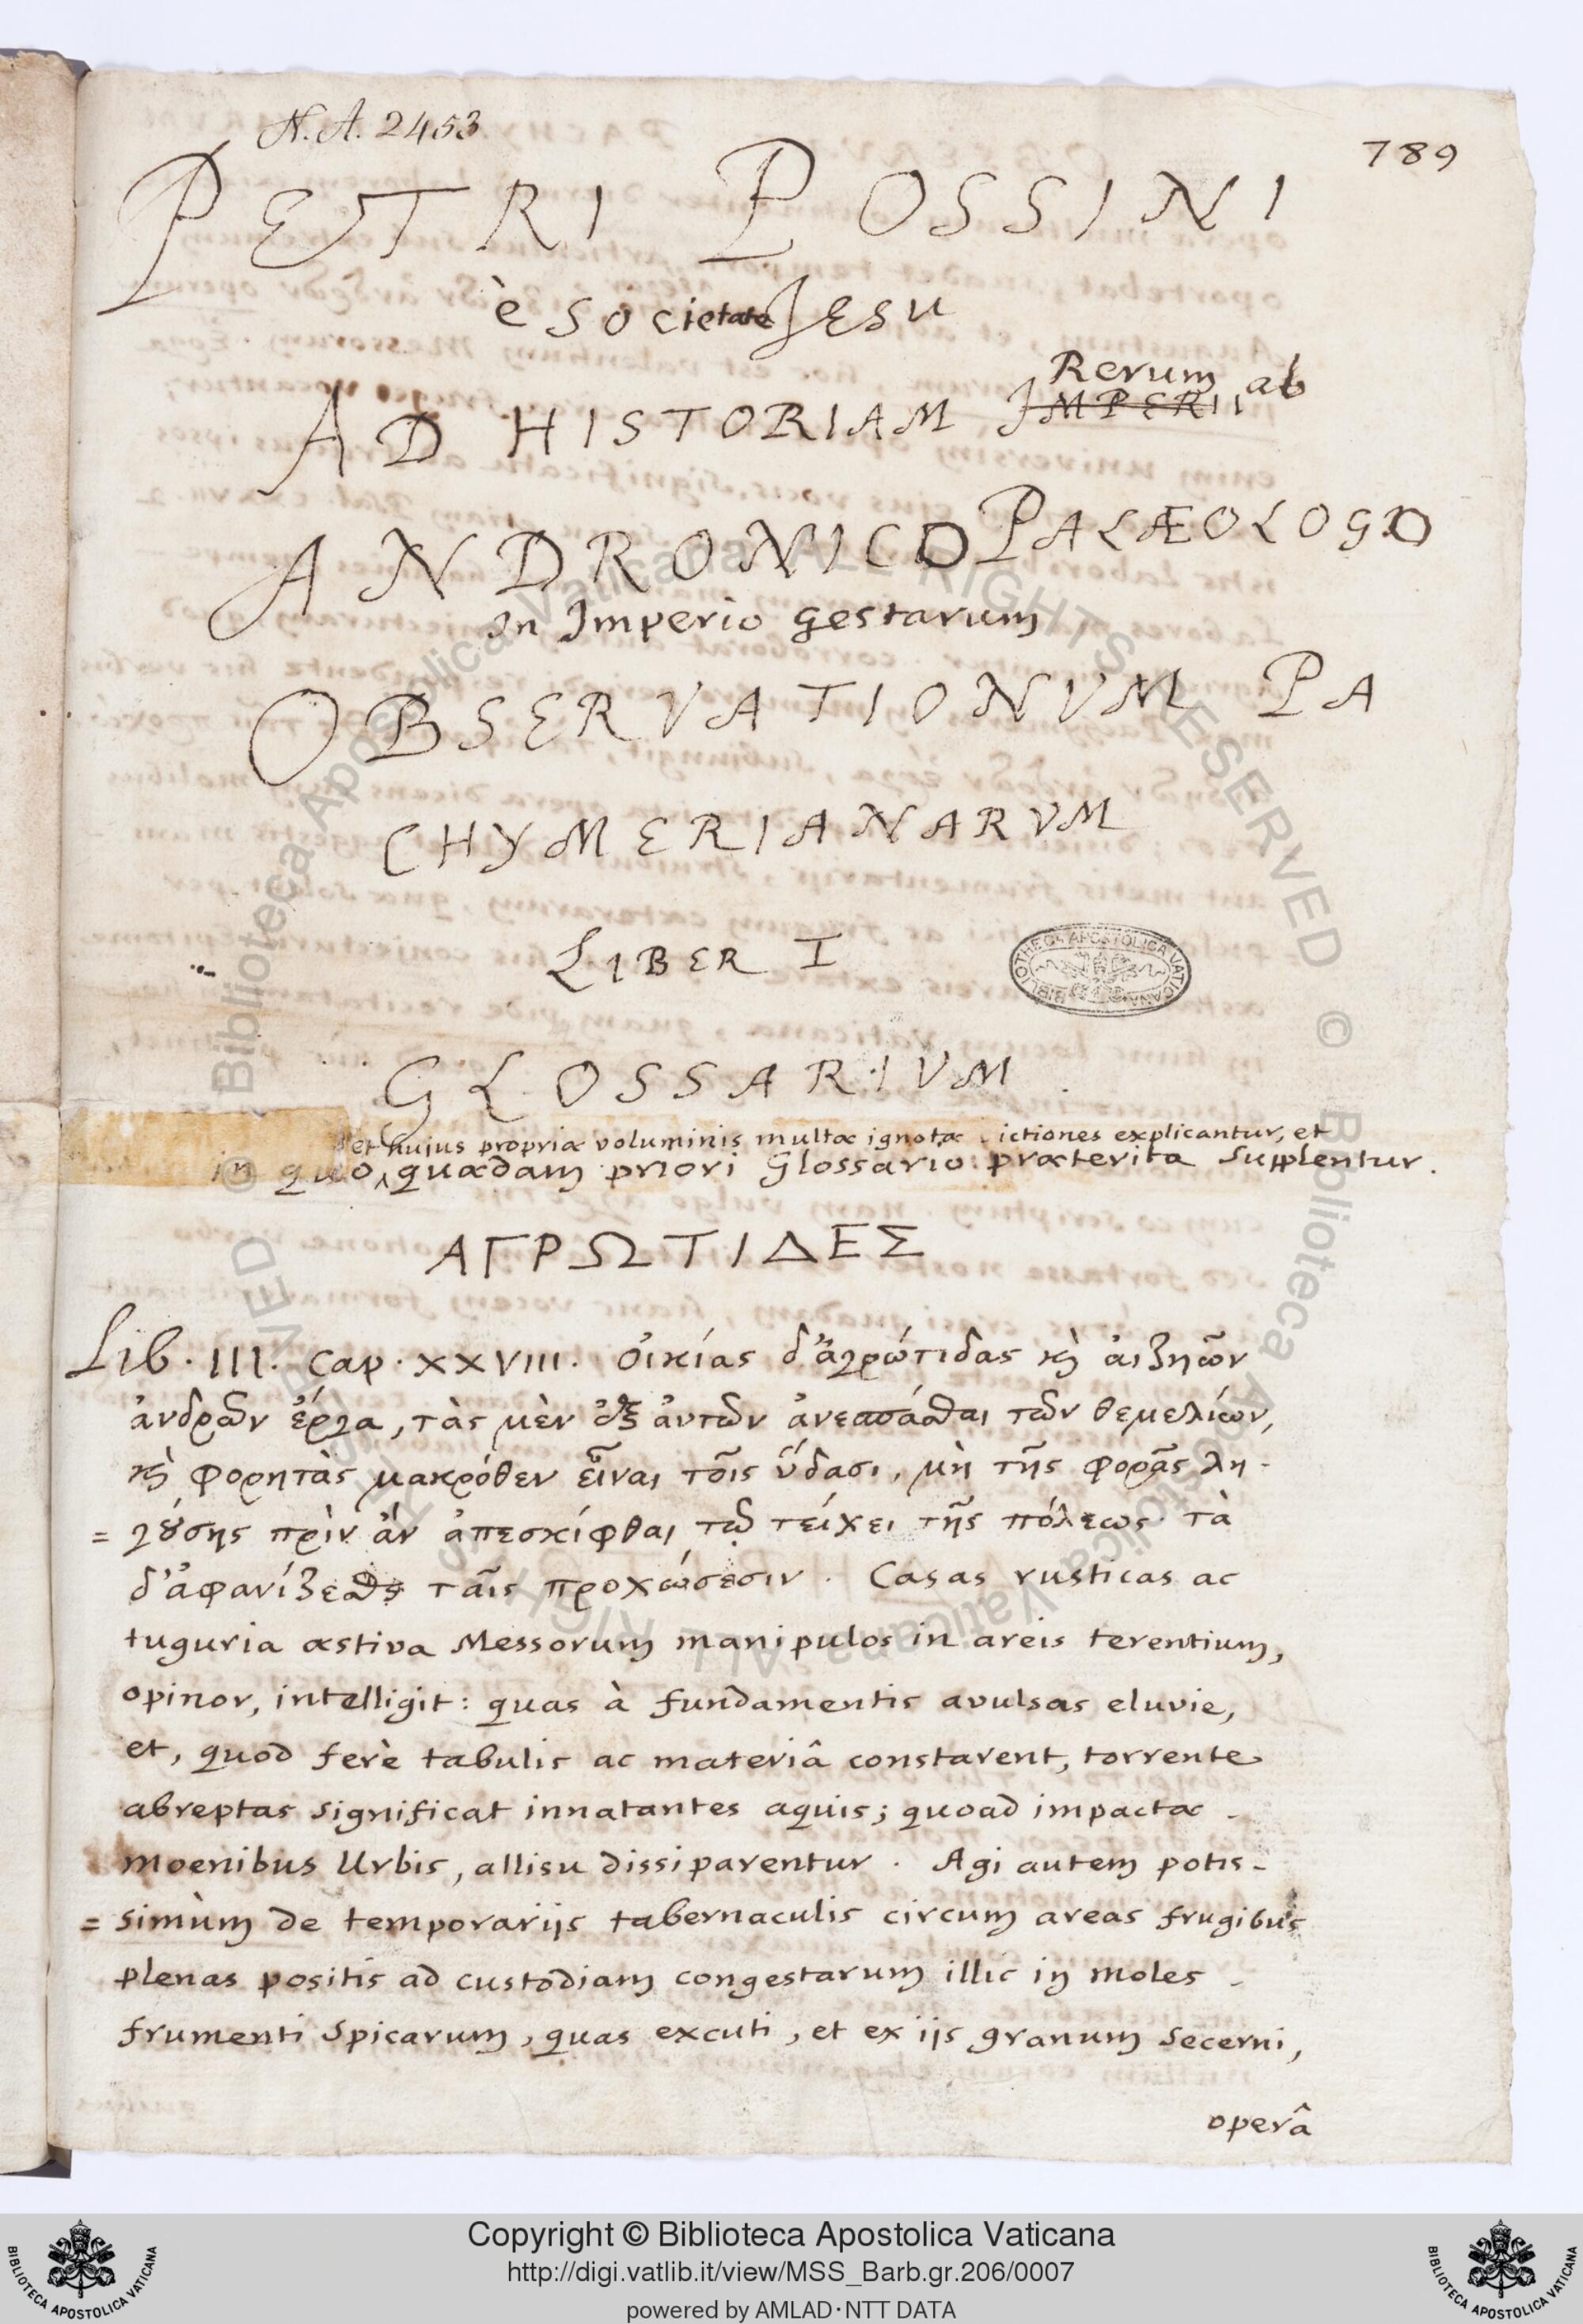 N.A. 2453
789
PETRI POSSINI
è Societate Jesu
Rerum ab
AD HISTORIAM IMPERII
ANDRONICO PALÆOLOGO
in Imperio gestarum
OBSERVATIONVM PA
CHYMERIANARVM
LIBER I
GLOSSARIVM
et hujus propriæ voluminis multæ ignotæ dictiones explicantur, et
in quo quædam priori Glossario præterita supplentur.
ΑΓΡΩΤΙΔΕΣ
Lib. III. cap. XXVIII. οἰκίας δ'ἀγρώτιδας κὴ αἰζηῶν
ἀνδρῶν ἔργα, τὰς μὲν ἐξ αὐτῶν ἀνεσπάσθαι τῶν θεμελίων,
κὴ φορητὰς μακρόθεν εἶναι τοῖς ὕδασι, μὴ τῆς φορᾶς λη-
= γούσης πρὶν ἂν ἀπεσκίφθαι τῷ τείχει τῆς πόλεως. τὰ
δ'ἀφανίζεσθαι ταῖς προχώσεσιν. Casas rusticas ac
tuguria æstiva Messorum manipulos in areis terentium,
opinor, intelligit: quas à fundamentis avulsas eluvie,
et, quod ferè tabulis ac materiâ constarent, torrente
abreptas significat innatantes aquis; quoad impactæ
moenibus Urbis, allisu dissiparentur. Agi autem potis-
= simùm de temporariis tabernaculis circum areas frugibus
plenas positis ad custodiam congestarum illic in moles
frumenti spicarum, quas excuti, et ex iis granum secerni,
operâ
BIBLIOTHECA APOSTOLICA VATICANA
© Biblioteca Apostolica Vaticana ALL RIGHTS RESERVED
Copyright © Biblioteca Apostolica Vaticana
http://digi.vatlib.it/view/MSS_Barb.gr.206/0007
powered by AMLAD·NTT DATA
BIBLIOTECA APOSTOLICA VATICANA
BIBLIOTECA APOSTOLICA VATICANA